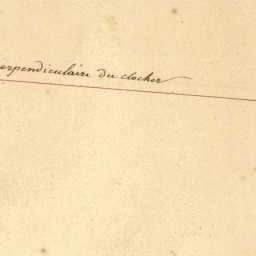 erpendiculaire du clocher